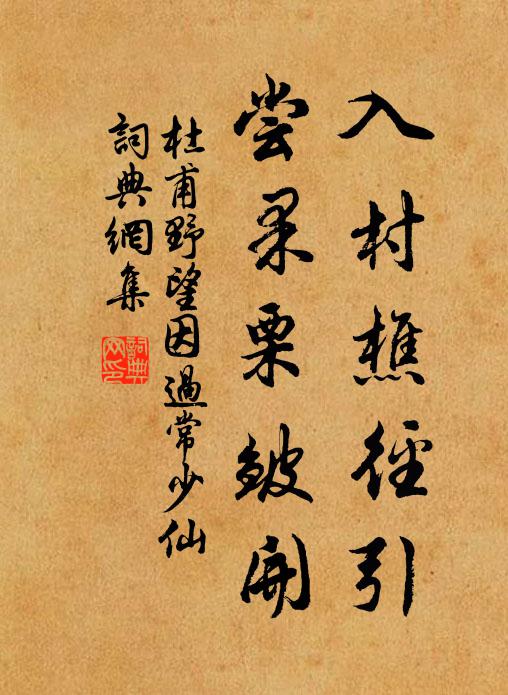 入村樵徑引
尝果栗皺開
杜甫野望因過常少仙
詞典網集
詞典網印